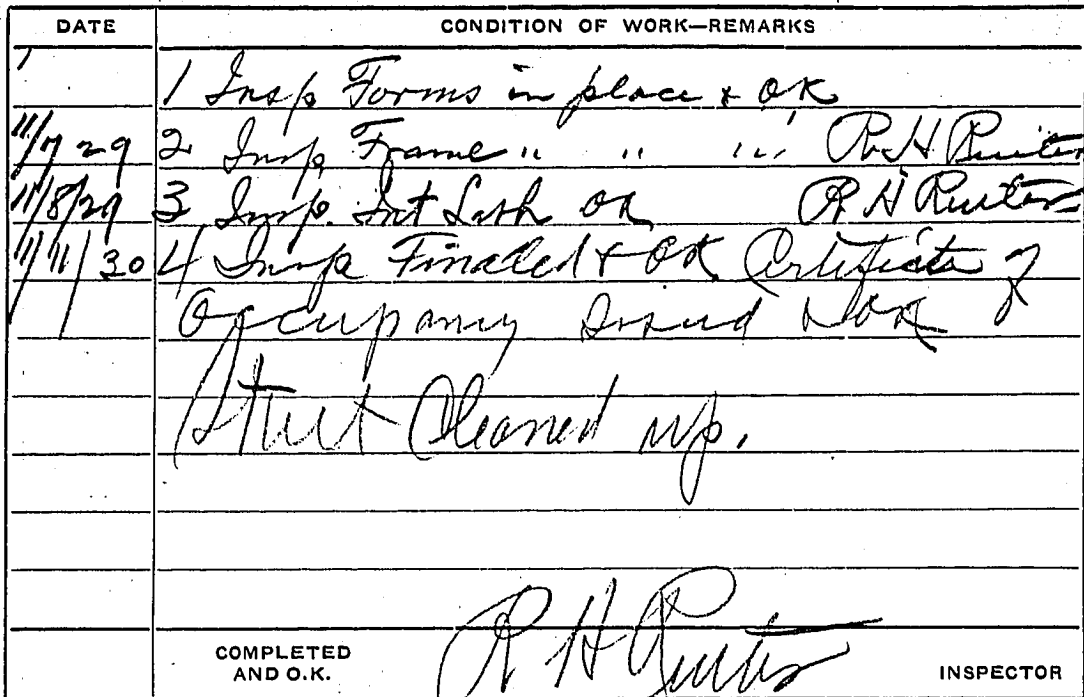 DATE CONDITION OF WORK—REMARKS
1 Insp Forms in place & OK
11/7 29 2 Insp Frame " " " R H Ruiter
11/8/29 3 Insp. Int Lath OK R H Ruiter
11/11/30 4 Insp Finaled & OK Certificate of
Occupancy Issued
Street Cleaned up.
R H Ruiter
COMPLETED
AND O.K. INSPECTOR